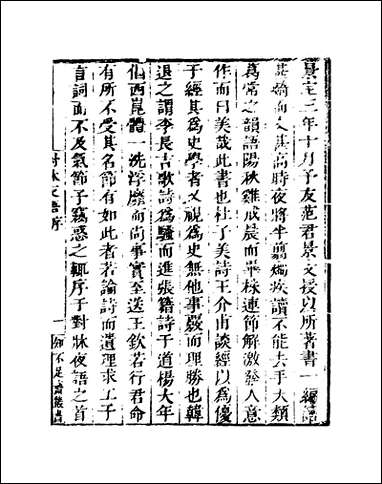 景定三年十月予友范君景文授以所著書一編語
甚綺而文甚高時夜將半翦燭疾讀不能去手大類
葛常之韻語陽秋雞戒晨而畢條連節解激發人意
作而曰美哉此書也杜子美詩王介甫談經以爲優
于經其爲史學者又視爲史無他事覈而理勝也韓
退之謂李長吉歌詩爲騷而進張籍詩于道楊大年
倡西崑體一洗浮靡而尚事實至送王欽若行君命
有所不受其名節有如此者若論詩而遺理求工于
言詞而不及氣節予竊惑之輒序于對牀夜語之首
對牀夜語序
一
知不足齋叢書